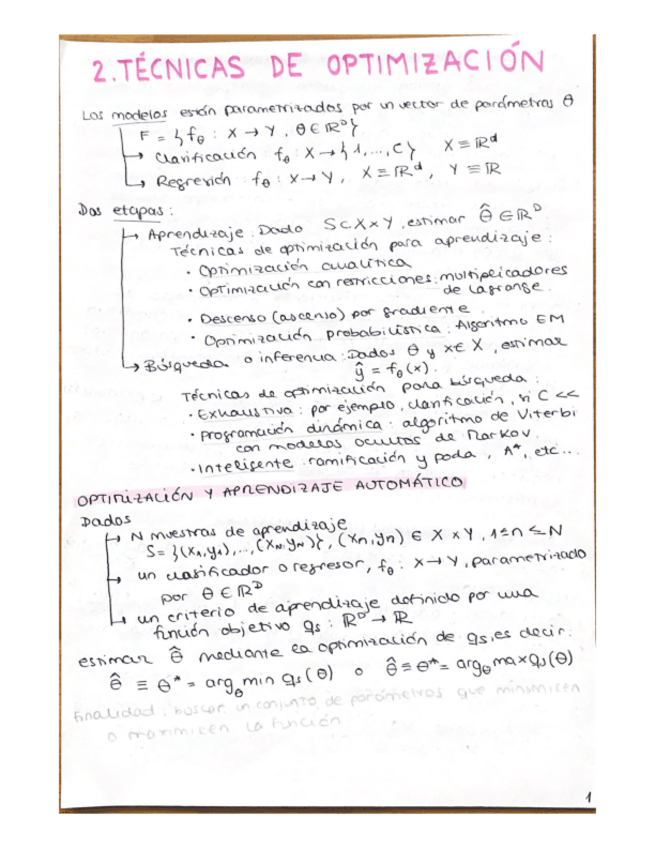 2. TÉCNICAS DE OPTIMIZACIÓN
Los modelos están parametrizados por un vector de parámetros θ
F = { fθ : X → Y , θ ∈ ℝᴰ }
→ Clasificación fθ : X → { 1, ..., C } X ≡ ℝᵈ
→ Regresión fθ : X → Y, X ≡ ℝᵈ, Y ≡ ℝ
Dos etapas :
→ Aprendizaje : Dado S ⊂ X x Y , estimar θ̂ ∈ ℝᴰ
Técnicas de optimización para aprendizaje :
• Optimización analítica
• Optimización con restricciones : multiplicadores
de Lagrange.
• Descenso (ascenso) por gradiente .
• Optimización probabilística : Algoritmo EM
→ Búsqueda o inferencia : Dados θ y x ∈ X , estimar
ŷ = fθ (x) .
Técnicas de optimización para búsqueda :
• Exhaustiva : por ejemplo, clasificación, si C <<
• Programación dinámica : algoritmo de Viterbi
con modelos ocultos de Markov .
• Inteligente ramificación y poda , A*, etc...
OPTIMIZACIÓN Y APRENDIZAJE AUTOMÁTICO
Dados
→ N muestras de aprendizaje
S = {(x₁,y₁), ..., (x_N, y_N)}, (xₙ,yₙ) ∈ X x Y , 1 ≤ n ≤ N
→ un clasificador o regresor, fθ : X → Y , parametrizado
por θ ∈ ℝᴰ
→ un criterio de aprendizaje definido por una
función objetivo qs : ℝᴰ → ℝ
estimar θ̂ mediante la optimización de qs, es decir:
θ̂ ≡ θ* = argθ min qs (θ) o θ̂ ≡ θ* = argθ max qs (θ)
Finalidad : buscar un conjunto de parámetros que minimicen
o maximicen la función
1